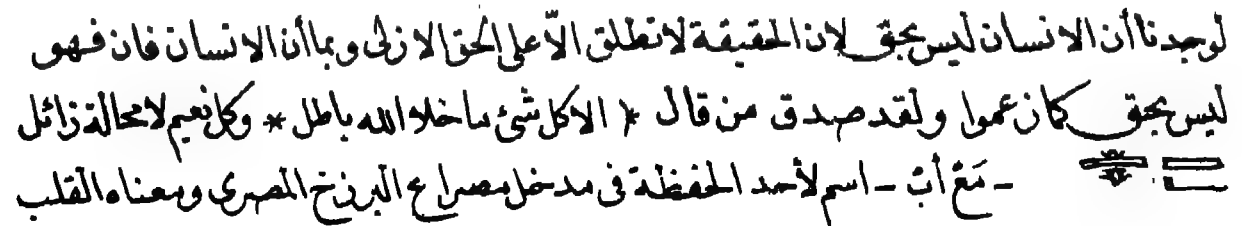 لوجدنا أن الانسان ليس بحق لان الحقيقة لا تطلق الاّ على الحق الازلى وبما أن الانسان فان فهو
ليس بحق كما زعموا ولقد صدق من قال * الا كل شئ ما خلا الله باطل * وكل نعيم لا محالة زائل
ـ مَعْ أبْ ـ اسم لأحد الحفظة فى مدخل مصراع البرزخ المصرى ومعناه القلب